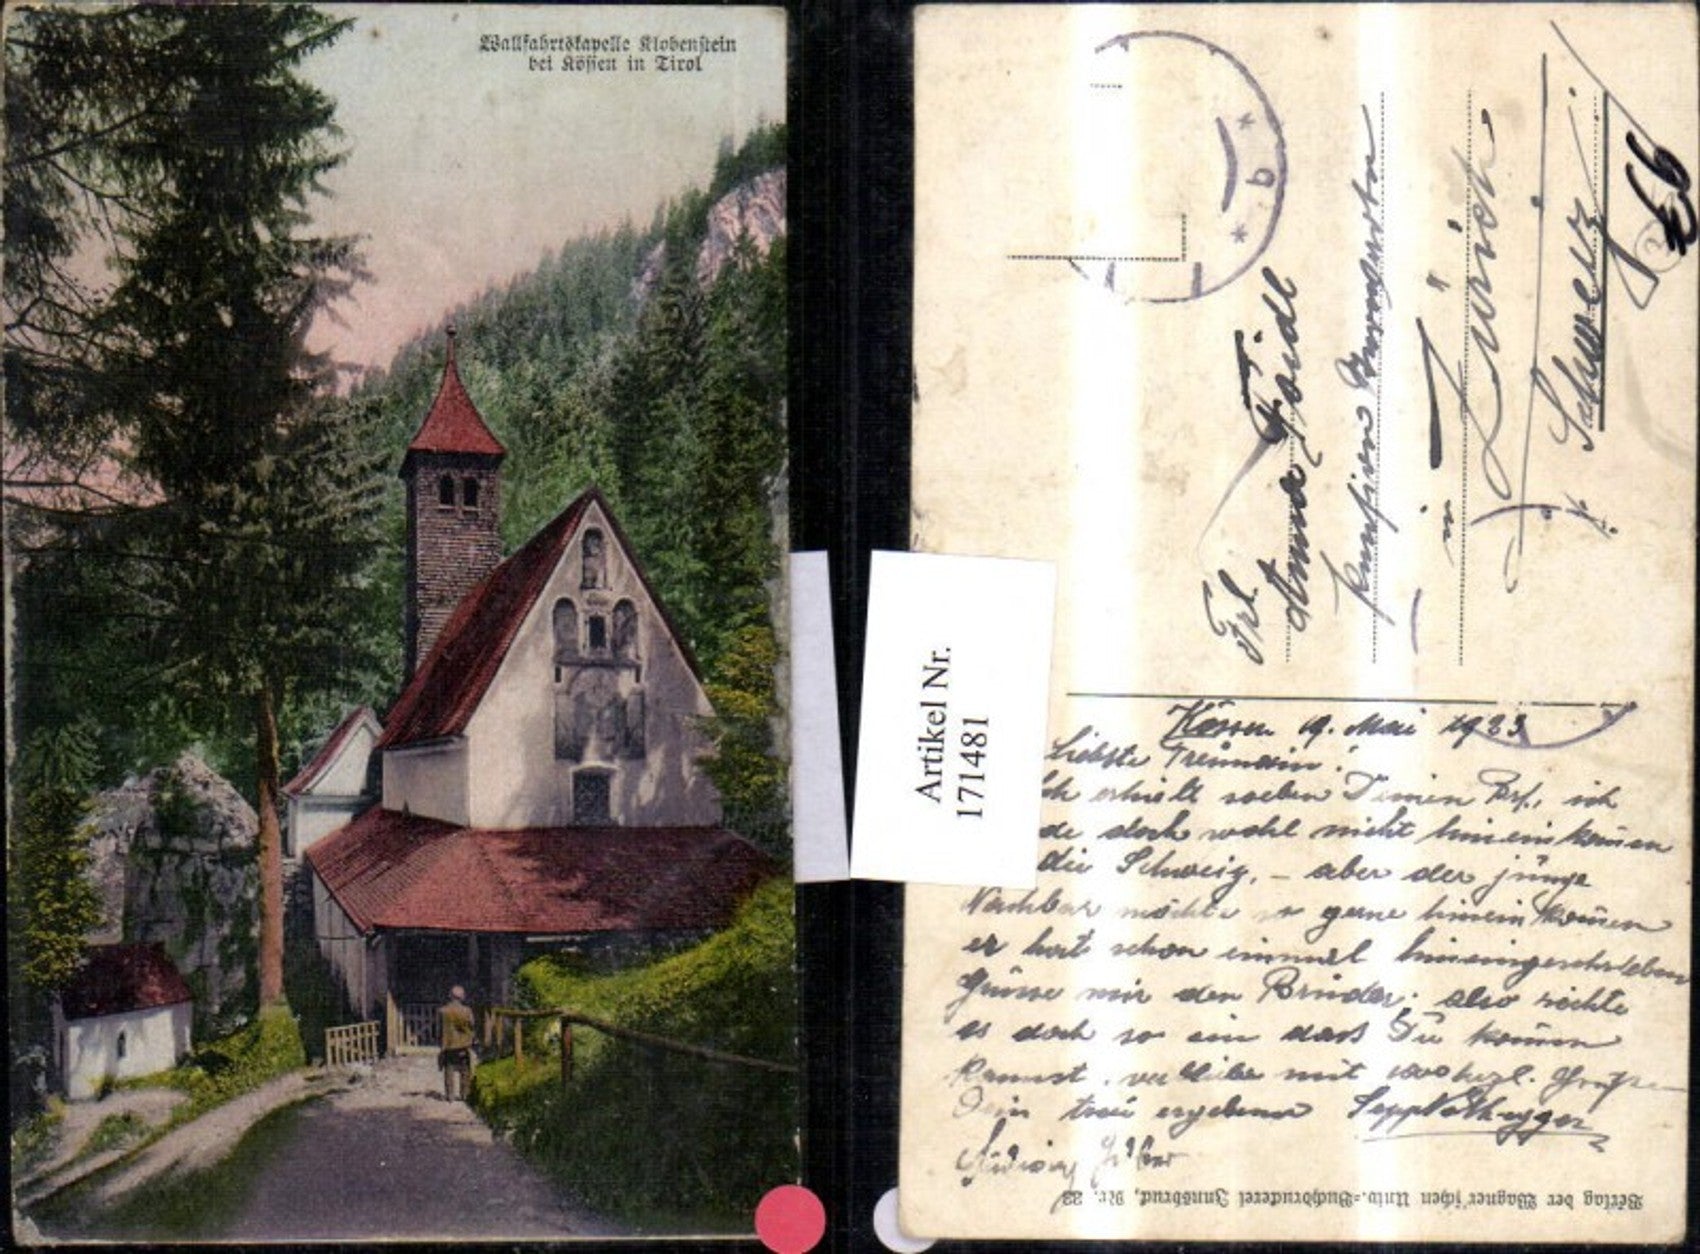 Wallfahrtskapelle Klobenstein
bei Kössen in Tirol
Artikel Nr.
171481
Frl.
Anna Foidl
Pension
in Zürich
Schweiz
Kössen 19. Mai 1923
Liebste Freundin!
erhielt soeben Deinen Brf., ich
doch wohl nicht hinein können
die Schweiz, – aber der junge
Nachbar möchte so gerne hinein können
er hat schon einmal hineingeschrieben
Grüsse mir den Bruder, also richte
es doch so ein dass Du kommen
kannst. verbleibe mit 1000 herzl. Grüsse
Dein treu ergebener Sepp
Verlag der Wagner'schen Univ.-Buchdruckerei Innsbruck, Nr. 22